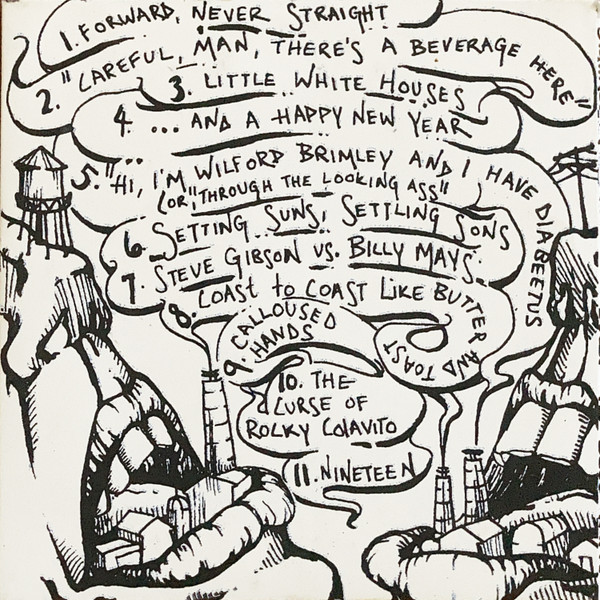 1. FORWARD, NEVER STRAIGHT
2. "CAREFUL, MAN, THERE'S A BEVERAGE HERE"
3. LITTLE WHITE HOUSES
4. ... AND A HAPPY NEW YEAR
5. "HI, I'M WILFORD BRIMLEY AND I HAVE DIABEETUS
(OR, "THROUGH THE LOOKING ASS"
6. SETTING SUNS, SETTLING SONS
7. STEVE GIBSON VS. BILLY MAYS
8. COAST TO COAST LIKE BUTTER AND TOAST
9. CALLOUSED
HANDS
10. THE
CURSE OF
ROLKY COLAVITO
11. NINETEEN